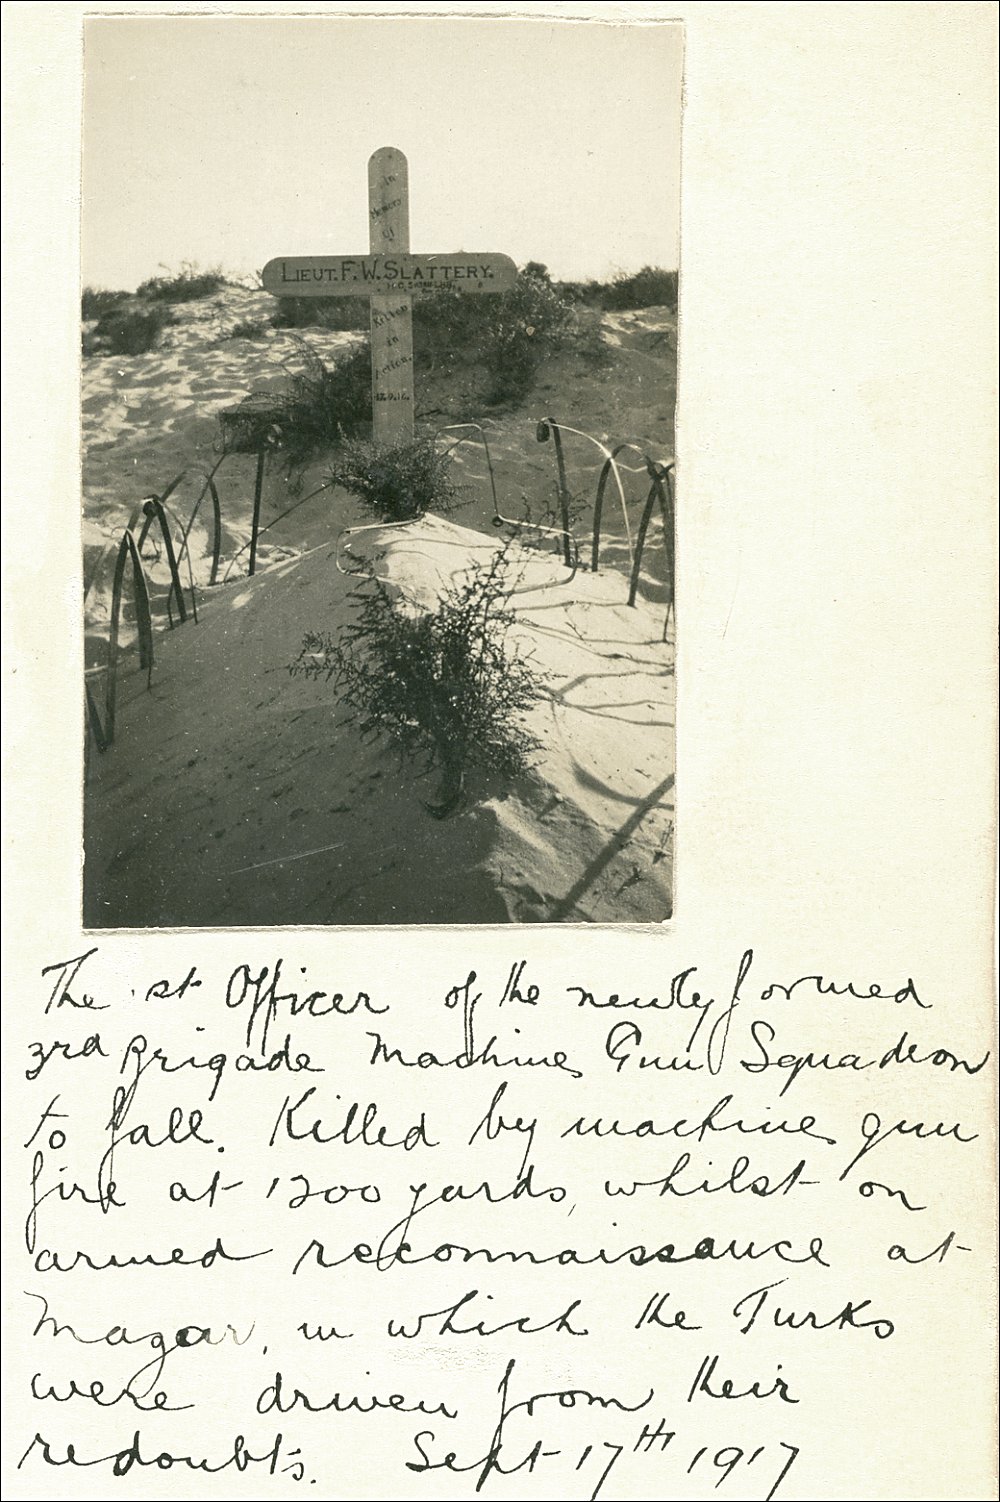 In
Memory
of
LIEUT. F. W. SLATTERY.
Killed
in
Action.
The 1st Officer of the newly formed
3rd Brigade Machine Gun Squadron
to fall. Killed by machine gun
fire at 1200 yards, whilst on
armed reconnaissance at
Magar, in which the Turks
were driven from their
redoubts. Sept 17th 1917